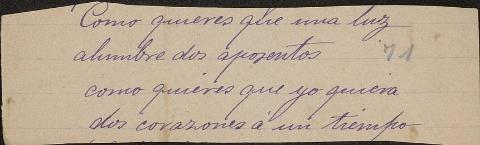 Como quieres que una luz
alumbre dos aposentos 71
como quieres que yo quiera
dos corazones á un tiempo